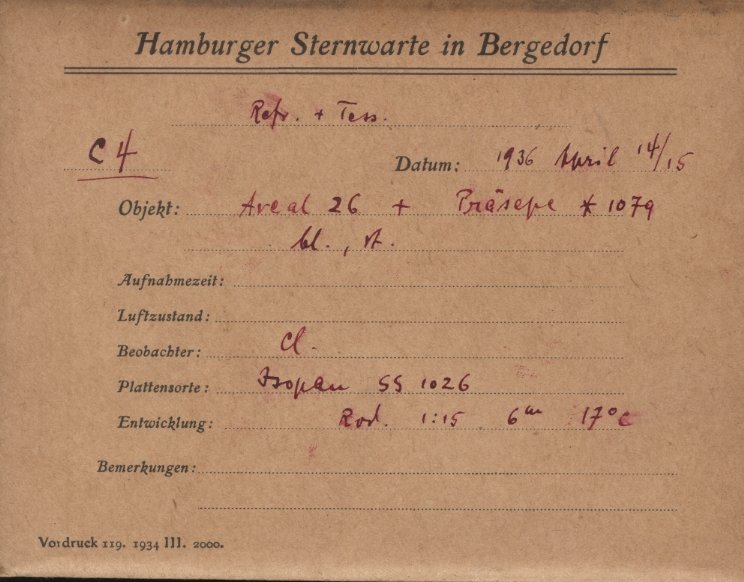 Hamburger Sternwarte in Bergedorf
Refr. + Tess.
C 4
Datum: 1936 April 14/15
Objekt: Areal 26 + Präsepe * 1079
bl., rt.
Aufnahmezeit:
Luftzustand:
Beobachter: Cl.
Plattensorte: Isopan SS 1026
Entwicklung: Rod. 1:15 6m 17°C
Bemerkungen:
Vordruck 119. 1934 III. 2000.